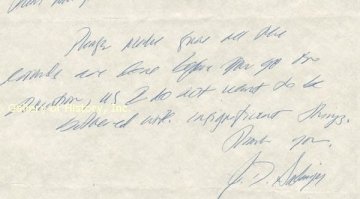 Please make sure all the
errands are done before you go on
vacation, as I do not want to be
bothered with insignificant things.
Thank you.
J. D. Salinger